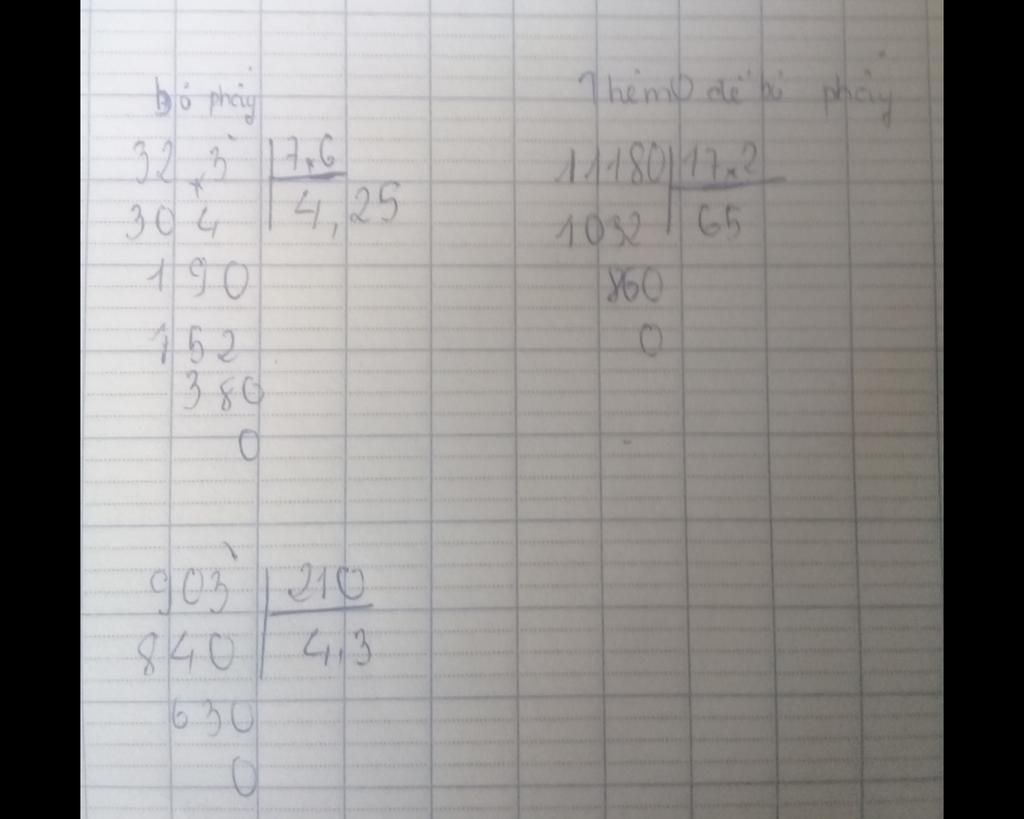 bỏ phẩy
32,3 7,6
30 4 4,25
1 90
152
380
0
Thêm 0 để bỏ phẩy
11180 17,2
1032 65
860
0
903 210
840 4,3
630
0